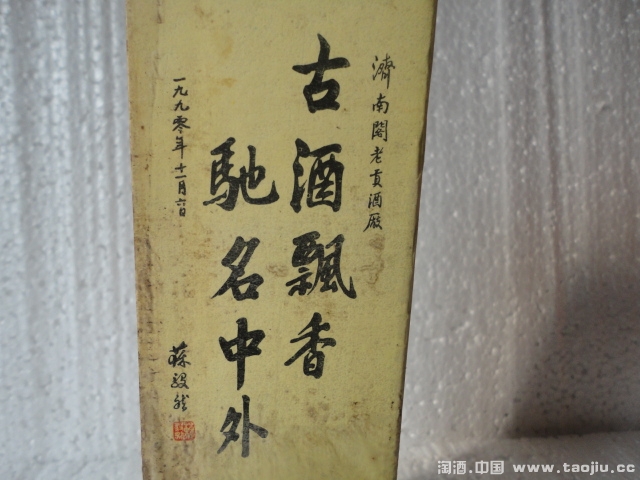 濟南閣老貢酒廠
古酒飄香
馳名中外
一九九零年十一月六日
淘酒.中国 www.taojiu.cc